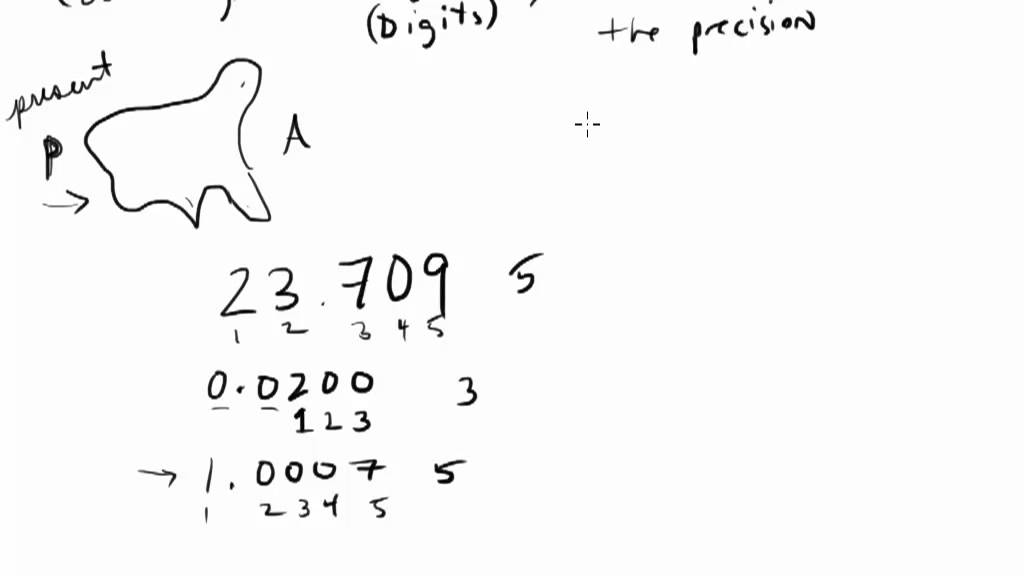 (Digits)
the precision
present
P
A
23.709 5
1 2 3 4 5
0.0200 3
1 2 3
→ 1.0007 5
1 2 3 4 5